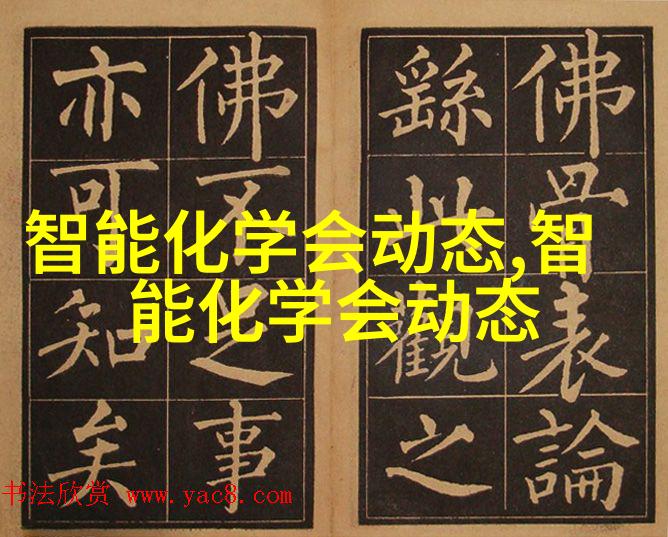 佛骨表論
繇此觀之
佛不足事
亦可知矣
智能化学会动态,智
能化学会动态
书法欣赏 www.yac8.com